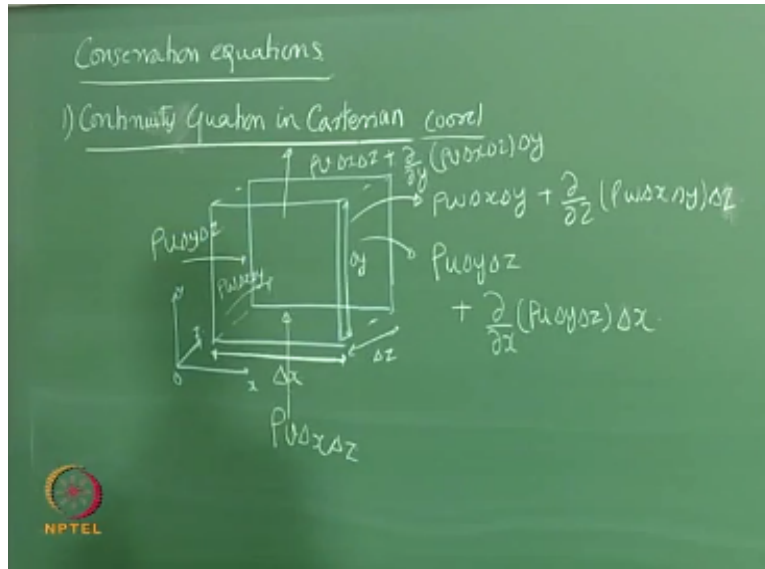 Conservation equations
1) Continuity Equation in Cartesian coord
ρv Δx Δz + ∂/∂y (ρv Δx Δz) Δy
ρw Δx Δy + ∂/∂z (ρw Δx Δy) Δz
ρu Δy Δz
Δy
ρu Δy Δz
ρw Δx Δy
+ ∂/∂x (ρu Δy Δz) Δx
y
z
Δz
0
x
Δx
ρv Δx Δz
NPTEL